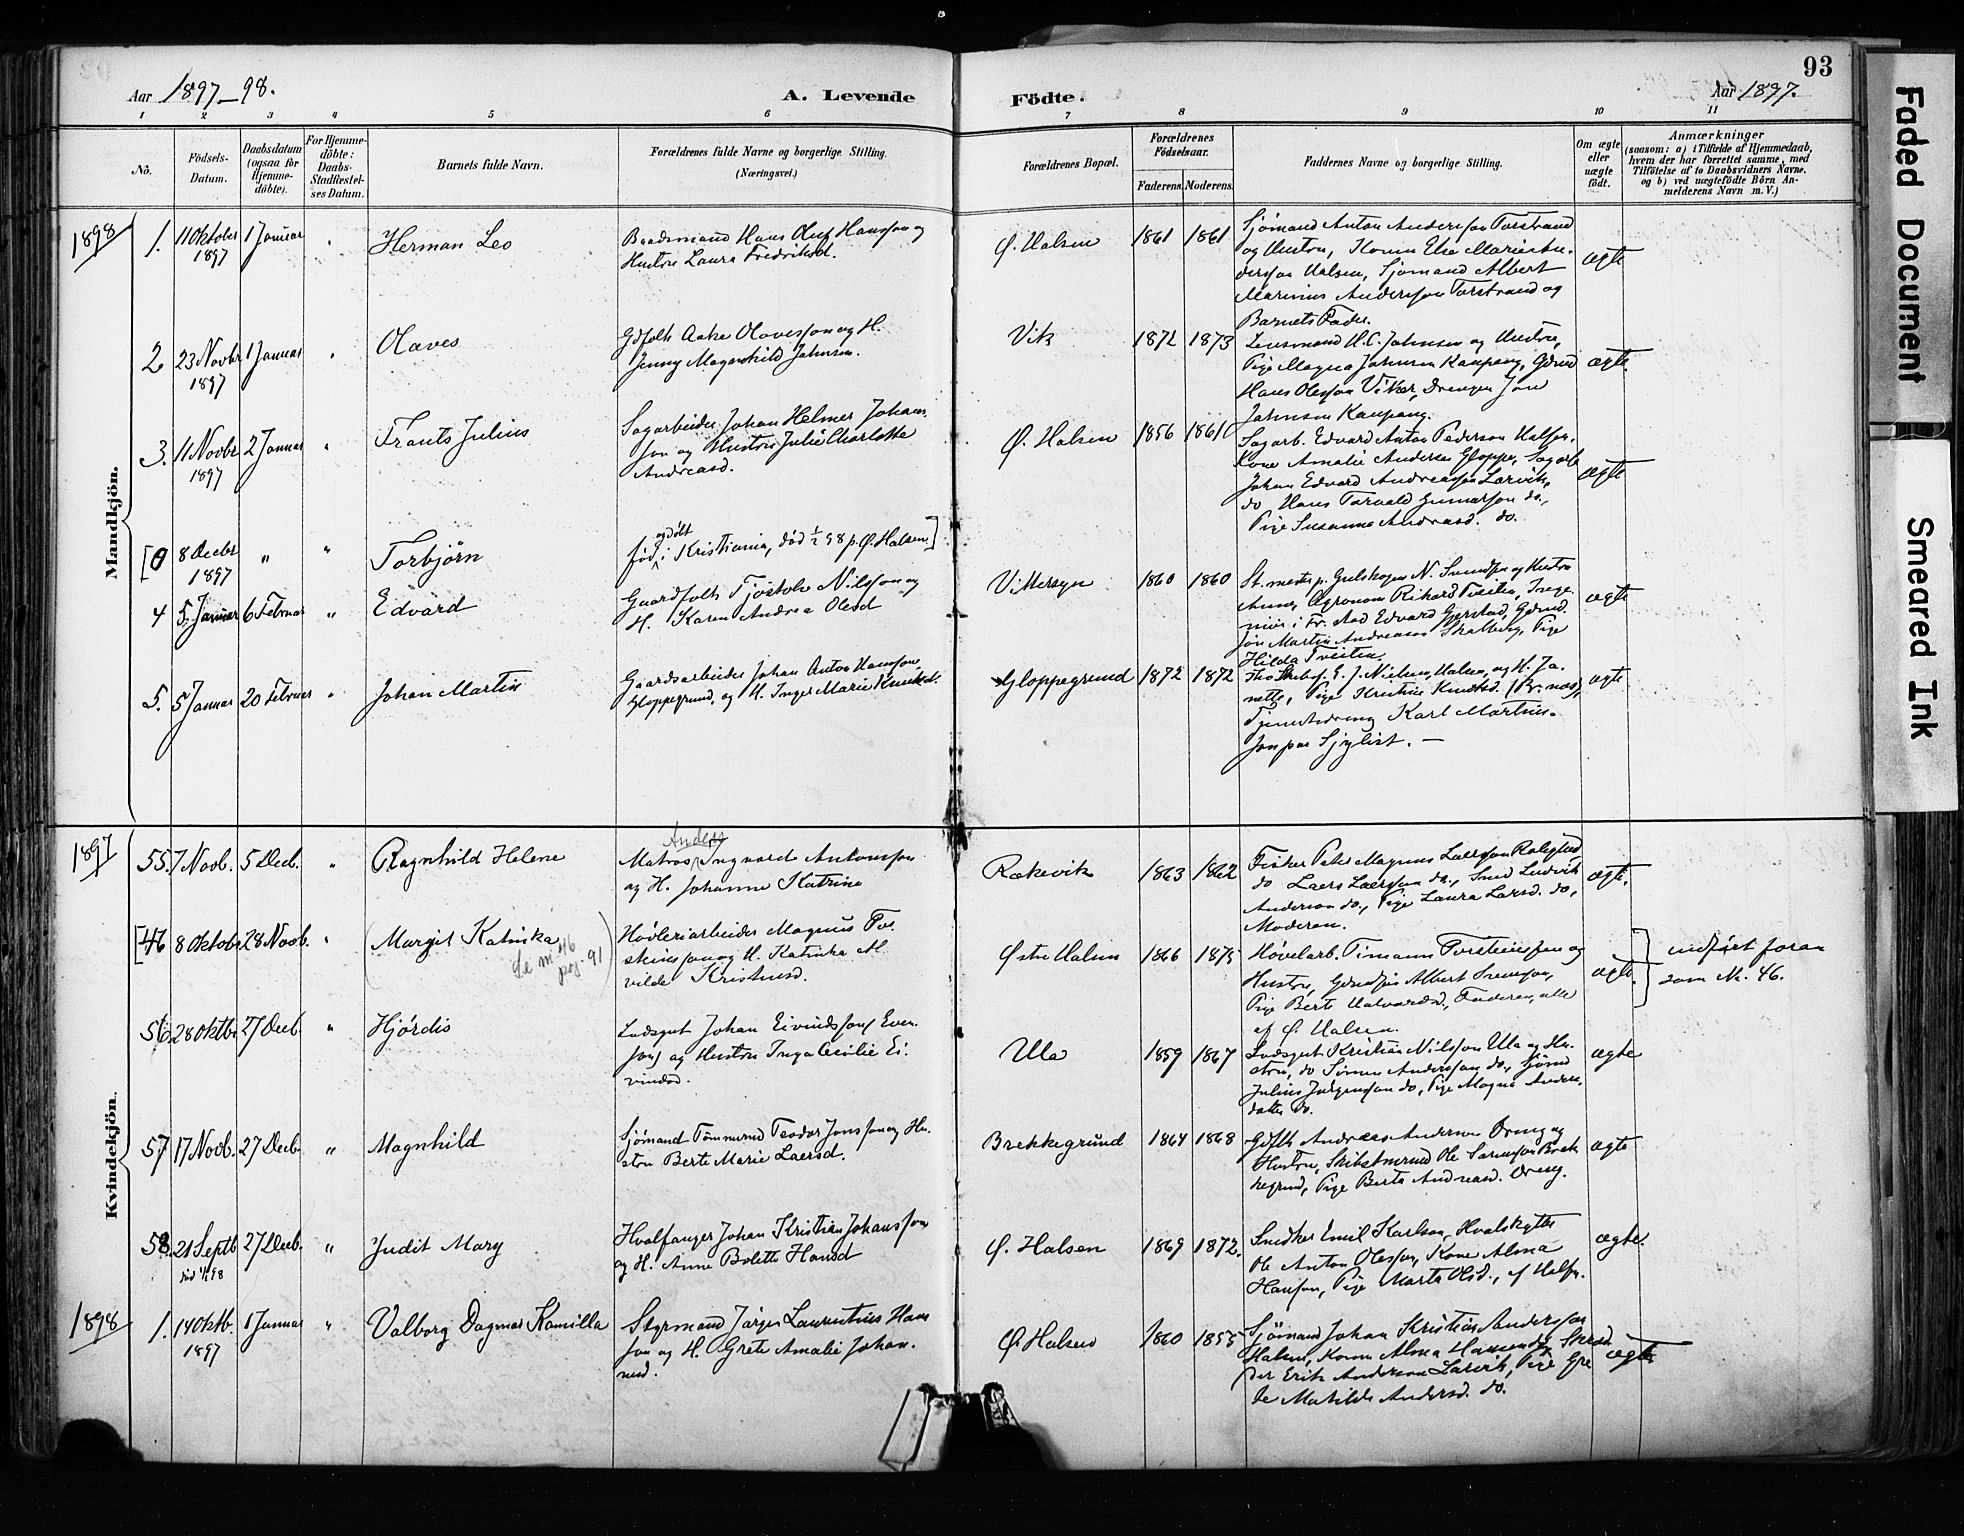 93
Aar 1897-98.
A. Levende
Födte.
Aar 1897.
1 2 3 4 5 6 7 8 9 10 11
No.
Födsels-Datum.
Daabsdatum (ogsaa för Hjemme-döbte).
For Hjemme-döbte: Daabs-Stadfæstel-ses Datum.
Barnets fulde Navn.
Forældrenes fulde Navne og borgerlige Stilling.
(Næringsvei.)
Forældrenes Bopæl.
Forældrenes Födselsaar.
Faderens. Moderens.
Faddernes Navne og borgerlige Stilling.
Om ægte eller uægte födt.
Anmærkninger
(saasom: a) i Tilfælde af Hjemmedaab,
hvem der har forrettet samme, med
Tilföielse af to Daabsvidners Navne.
og b) ved uægtefödte Börn An-
melderens Navn m. V.)
Mandkjön.
1898
1. 11 Oktober 1897 1 Januar
Herman Leo
Baadsmand Hans Oluf Hansson og
Hustru Laura Fredriksd.
Ø. Halsen 1861 1861
Sjømand Anton Andersson Torstrand
og Hustru, Konen Else Marie An-
dersson Halsen, Sjømand Albert
Marinius Andersson Torstrand og
Barnets Fader.
ægte
2 23 Novbr 1897 1 Januar
Olaves
Gdfolk Aake Olavesson og H.
Jenny Magnhild Johnsen.
Vik 1872 1873
Lensmand H.C. Johnsen og Hustru,
Pige Magna Johnsen Kaupang, Gdmd
Hans Olesson Viker, Drengen Jon
Johnsen Kaupang.
ægte.
3. 11 Novbr 1897 2 Januar "
Frants Julius
Sagarbeider Johan Helmer Johans-
son og Hustru Julie Charlotte
Andreasd.
Ø. Halsen 1856 1861
Sagarb. Edvard Anton Pederson Halsen,
Kone Amalie Andersen Gloppe, Sagarb
Johan Edvard Andreasson Larvik,
do Hans Torvald Gunnarson do.,
Pige Susanne Andreasd. do.
ægte
[0 8 Decbr 1897 " "
Torbjørn
født og døbt i Kristiania, død 1/2 98 p. Ø. Halsen.]
4 5. Januar 6 Februar "
Edvard
Gaardfolk Tjøstolv Nilsson og
H. Karen Andrea Olesd
Vittersyn 1860 1860
St. mester p. Gulskogen N. Svendsen og Hustru
Anna, Agronom Rikard Tveiten, Inge-
niør i Fr.stad Edvard Gjerstad, Gdmd.
Jon Martin Andreasen Skalleberg, Pige
Hilda Tveiten.
ægte
5. 5 Januar 20 Februar "
Johan Martin
Gaardsarbeider Johan Anton Hansson,
Gloppegrund, og H. Inger Marie Knudsd.
Gloppegrund 1872 1872
E. J. Nielsen, Halsen, og H. Ja-
nette, Pige Kristine Knudsd. (Br.næs),
Tjenestedreng Karl Martin
ægte
Kvindekjön.
1897
55. 7 Novb. 5 Decb. "
Ragnhild Helene
Anders
Matros Ingvard Antonsson
og H. Johanne Katrine
Rækevik 1863 1862
Fisker Peter Magnus Laersson
do Laers Laersson do., Smed Ludvik
Anderson do., Pige Laura Larsd. do,
Moderen.
ægte.
[46 8 Oktobr 28 Novb. "
(Margit Katinka)
se nr 46
pag. 91
Høvleriarbeider Magnus Tor-
steinsson og H. Katinka M-
vilde Kristensd.
Østre Halsen 1866 1875
Høvelarb. Timann Torsteinsson og
Hustru, Albert Svensson,
Pige Berte Halvorsd., Faderen, alle
af Ø. Halsen.
ægte.
indført foran
som Nr. 46.
56 28 Oktbr 27 Decb. "
Hjørdis
Lodsgut Johan Eivindsson (Even-
son) og Hustru Inga Cecilie Ei-
vindsd.
Ula 1859 1867
Lodsgut Kristian Nilsson Ula og Hu-
stru, do Simen Andersson do., Sjømd
Julius Jørgensson do, Pige Magna Anders-
datter do.
ægte
57 17 Novb. 27 Decb. "
Magnhild
Sjømand Tømmermd Teodor Jonsson og Hu-
stru Berte Marie Laersd.
Brekkegrund 1864 1868
Gdflk Andreas Anderson Omeg og
Hustru, Skibstmrmd Ole Sørensson Brek-
kegrund, Pige Berta Andreasd. Omeg.
ægte
58. 21 Septb 27 Decb. "
død 1/1 98
Judit Mary
Hvalfanger Johan Kristian Johansson
og H. Anne Bolette Hansd
Ø. Halsen 1869 1872.
Snedker Emil Karlson, Hvalskytter
Ole Anton Olesson, Kone Alma
Hansson, Pige Marta Olsd., af Halsen.
ægte.
1898
1. 14 Oktb. 1897 1 Januar "
Valborg Dagmar Kamilla
Styrmand Jørgen Laurentius Hans-
son og H. Grete Amalie Johan-
nesd.
Ø. Halsen 1860 1855
Sjømand Johan Kristian Andersson
Halsen, Konen Alma Hansen do, Skræd-
der Erik Anderson Larvik, Pige Gre-
te Matilde Andersd. do.
ægte
Faded Document
Smeared Ink